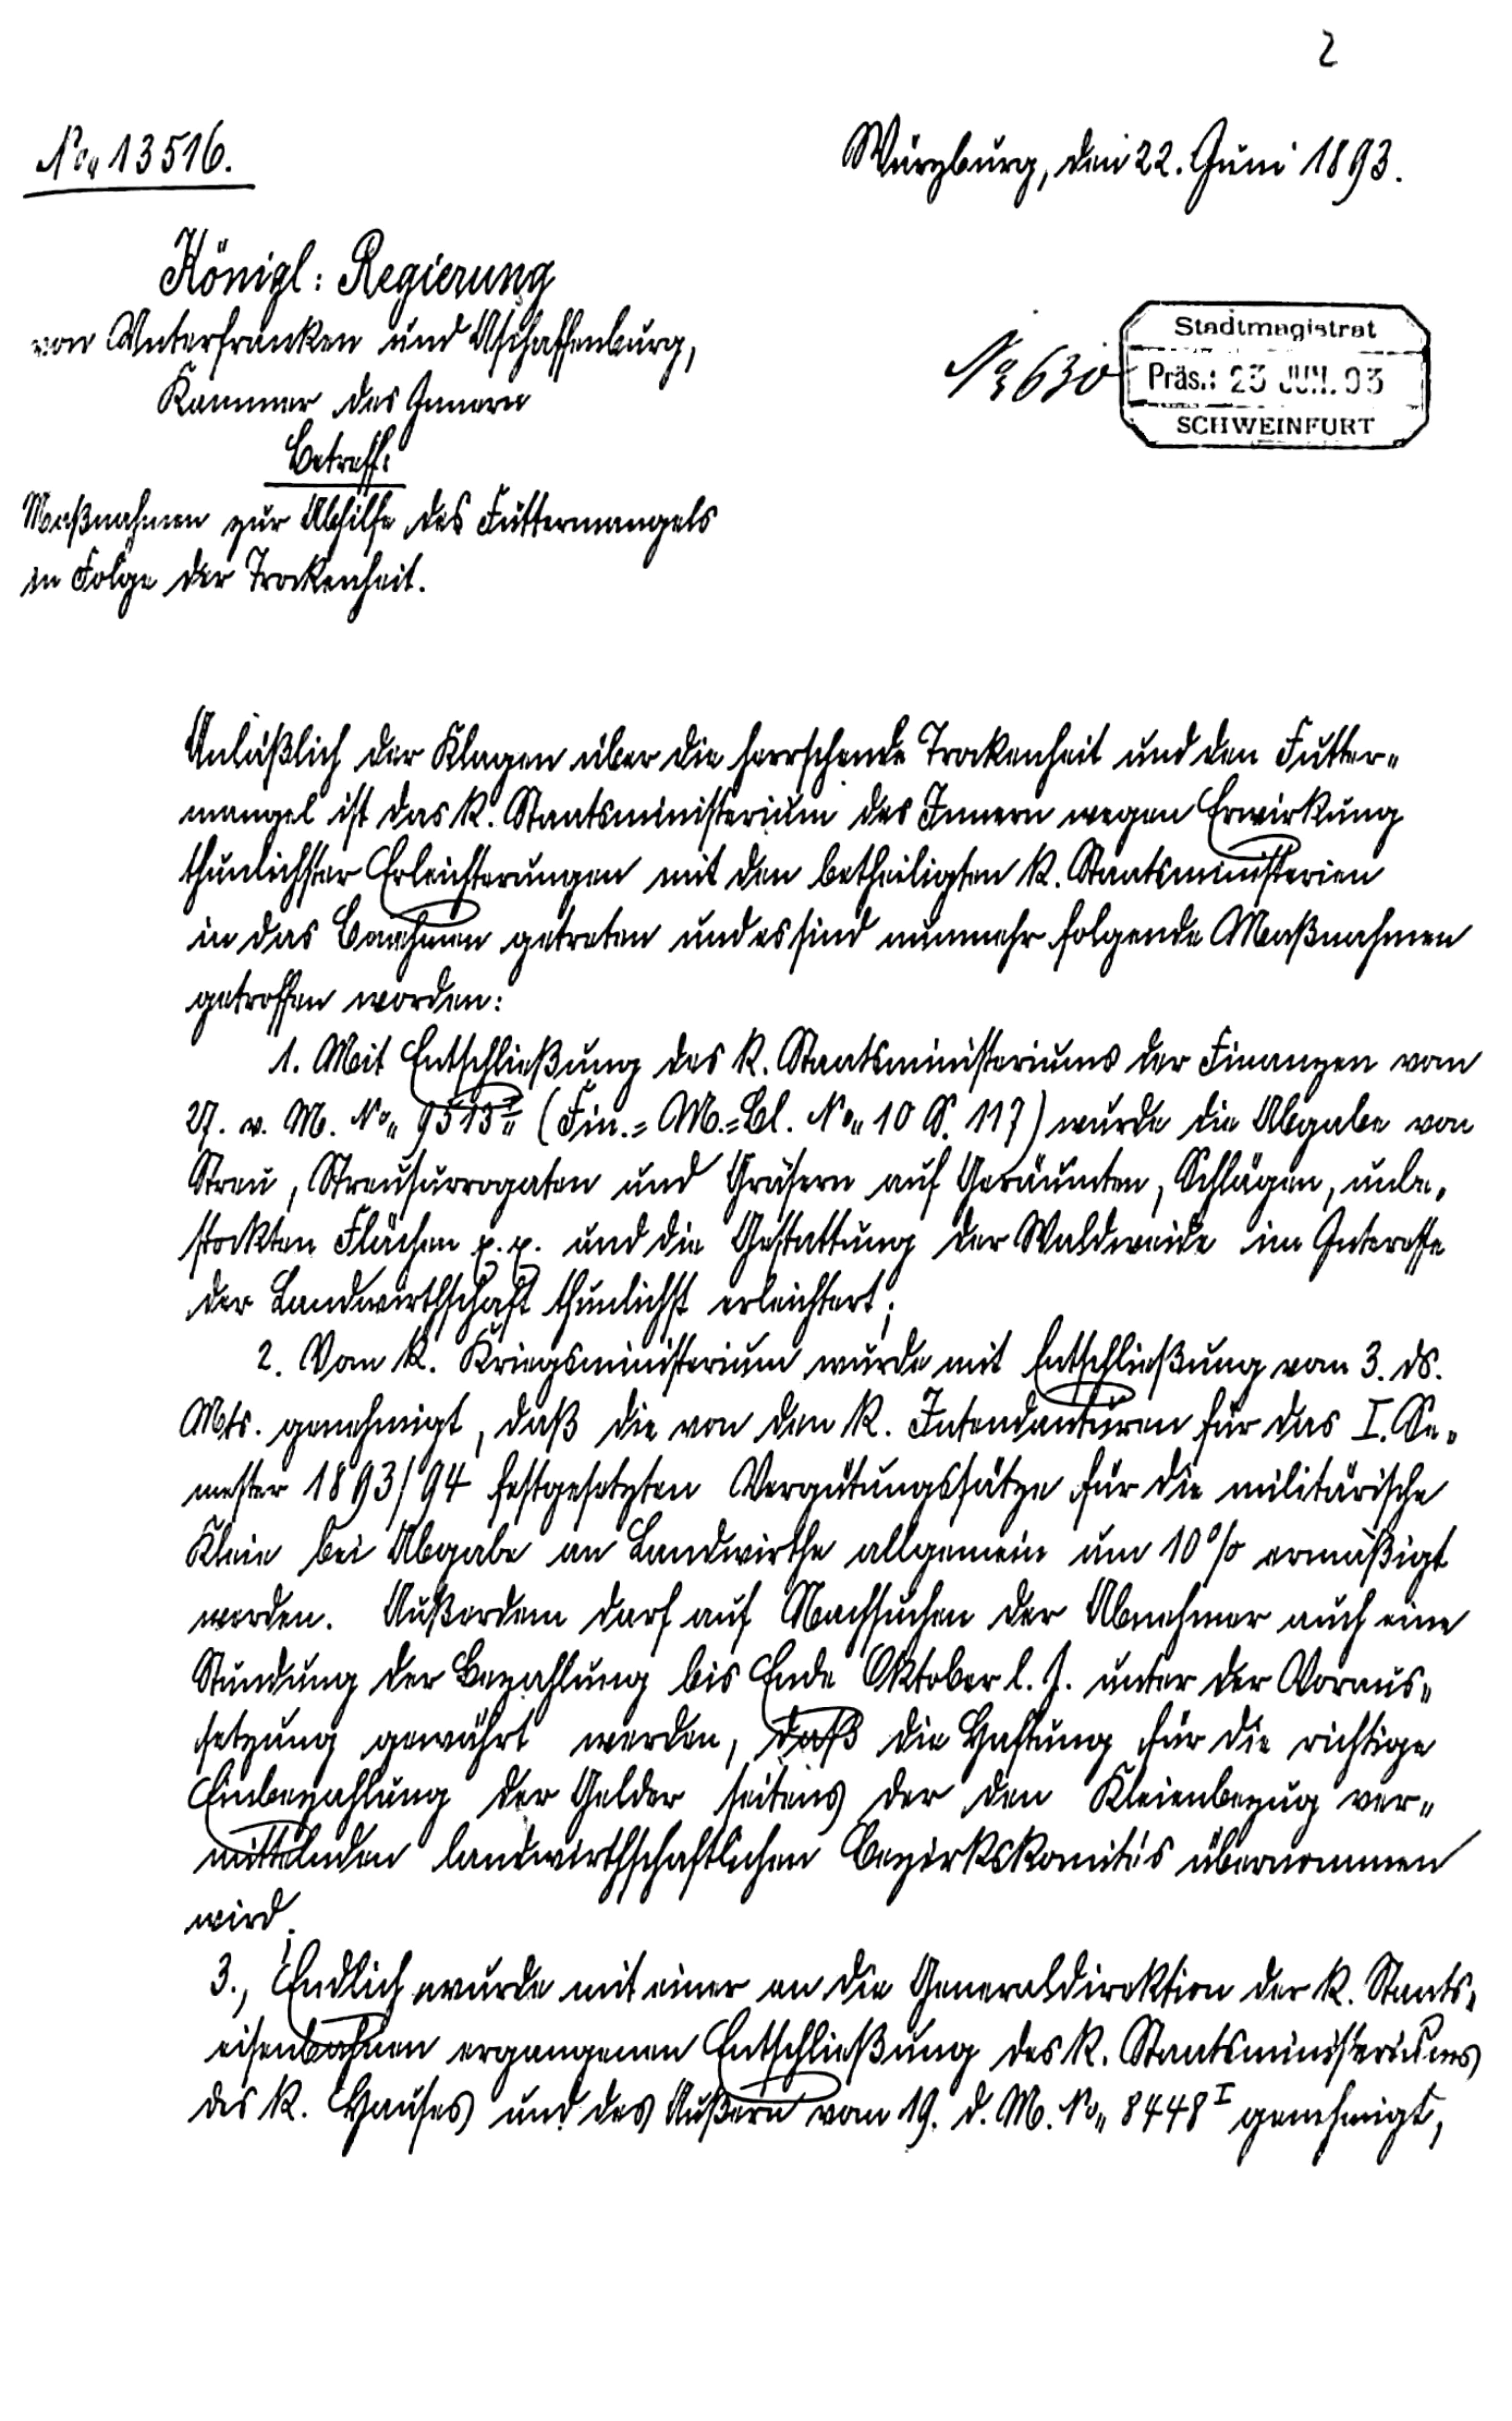 2
No. 13516.
Würzburg, den 22. Juni 1893.
Königl: Regierung
von Unterfranken und Aschaffenburg,
Kammer des Innern
No 630
Stadtmagistrat
Präs.: 23 JUN. 93
SCHWEINFURT
Betreff:
Maßnahmen zur Abhilfe des Futtermangels
in Folge der Trockenheit.
Anläßlich der Klagen über die herrschende Trockenheit und den Futter-
mangel ist das k. Staatsministerium des Innern wegen Erwirkung
thunlichster Erleichterungen mit den betheiligten k. Staatsministerien
in das Benehmen getreten und es sind nunmehr folgende Maßnahmen
getroffen worden:
1. Mit Entschließung des k. Staatsministeriums der Finanzen vom
27. v. M. No. 9513 (Fin.=M.=Bl. No. 10 S. 117) wurde die Abgabe von
Streu, Streusurrogaten und Gräsern auf Geräumten, Schlägen, unbe-
stockten Flächen p. p. und die Gestattung der Waldweide im Interesse
der Landwirthschaft thunlichst erleichtert;
2. Vom k. Kriegsministerium wurde mit Entschließung vom 3. ds.
Mts. genehmigt, daß die von den k. Intendanturen für das I. Se-
mester 1893/94 festgesetzten Vergütungssätze für die militärische
Kleie bei Abgabe an Landwirthe allgemein um 10% ermäßigt
werden. Außerdem darf auf Nachsuchen der Abnehmer auch eine
Stundung der Bezahlung bis Ende Oktober l. J. unter der Voraus-
setzung gewährt werden, daß die Haftung für die richtige
Einbezahlung der Gelder seitens der den Kleienbezug ver-
mittelnden landwirthschaftlichen Bezirkskomités übernommen
wird;
3., Endlich wurde mit einer an die Generaldirektion der k. Staats-
eisenbahnen ergangenen Entschließung des k. Staatsministeriums
des k. Hauses und des Äußern vom 19. d. M. No. 8448 I genehmigt,